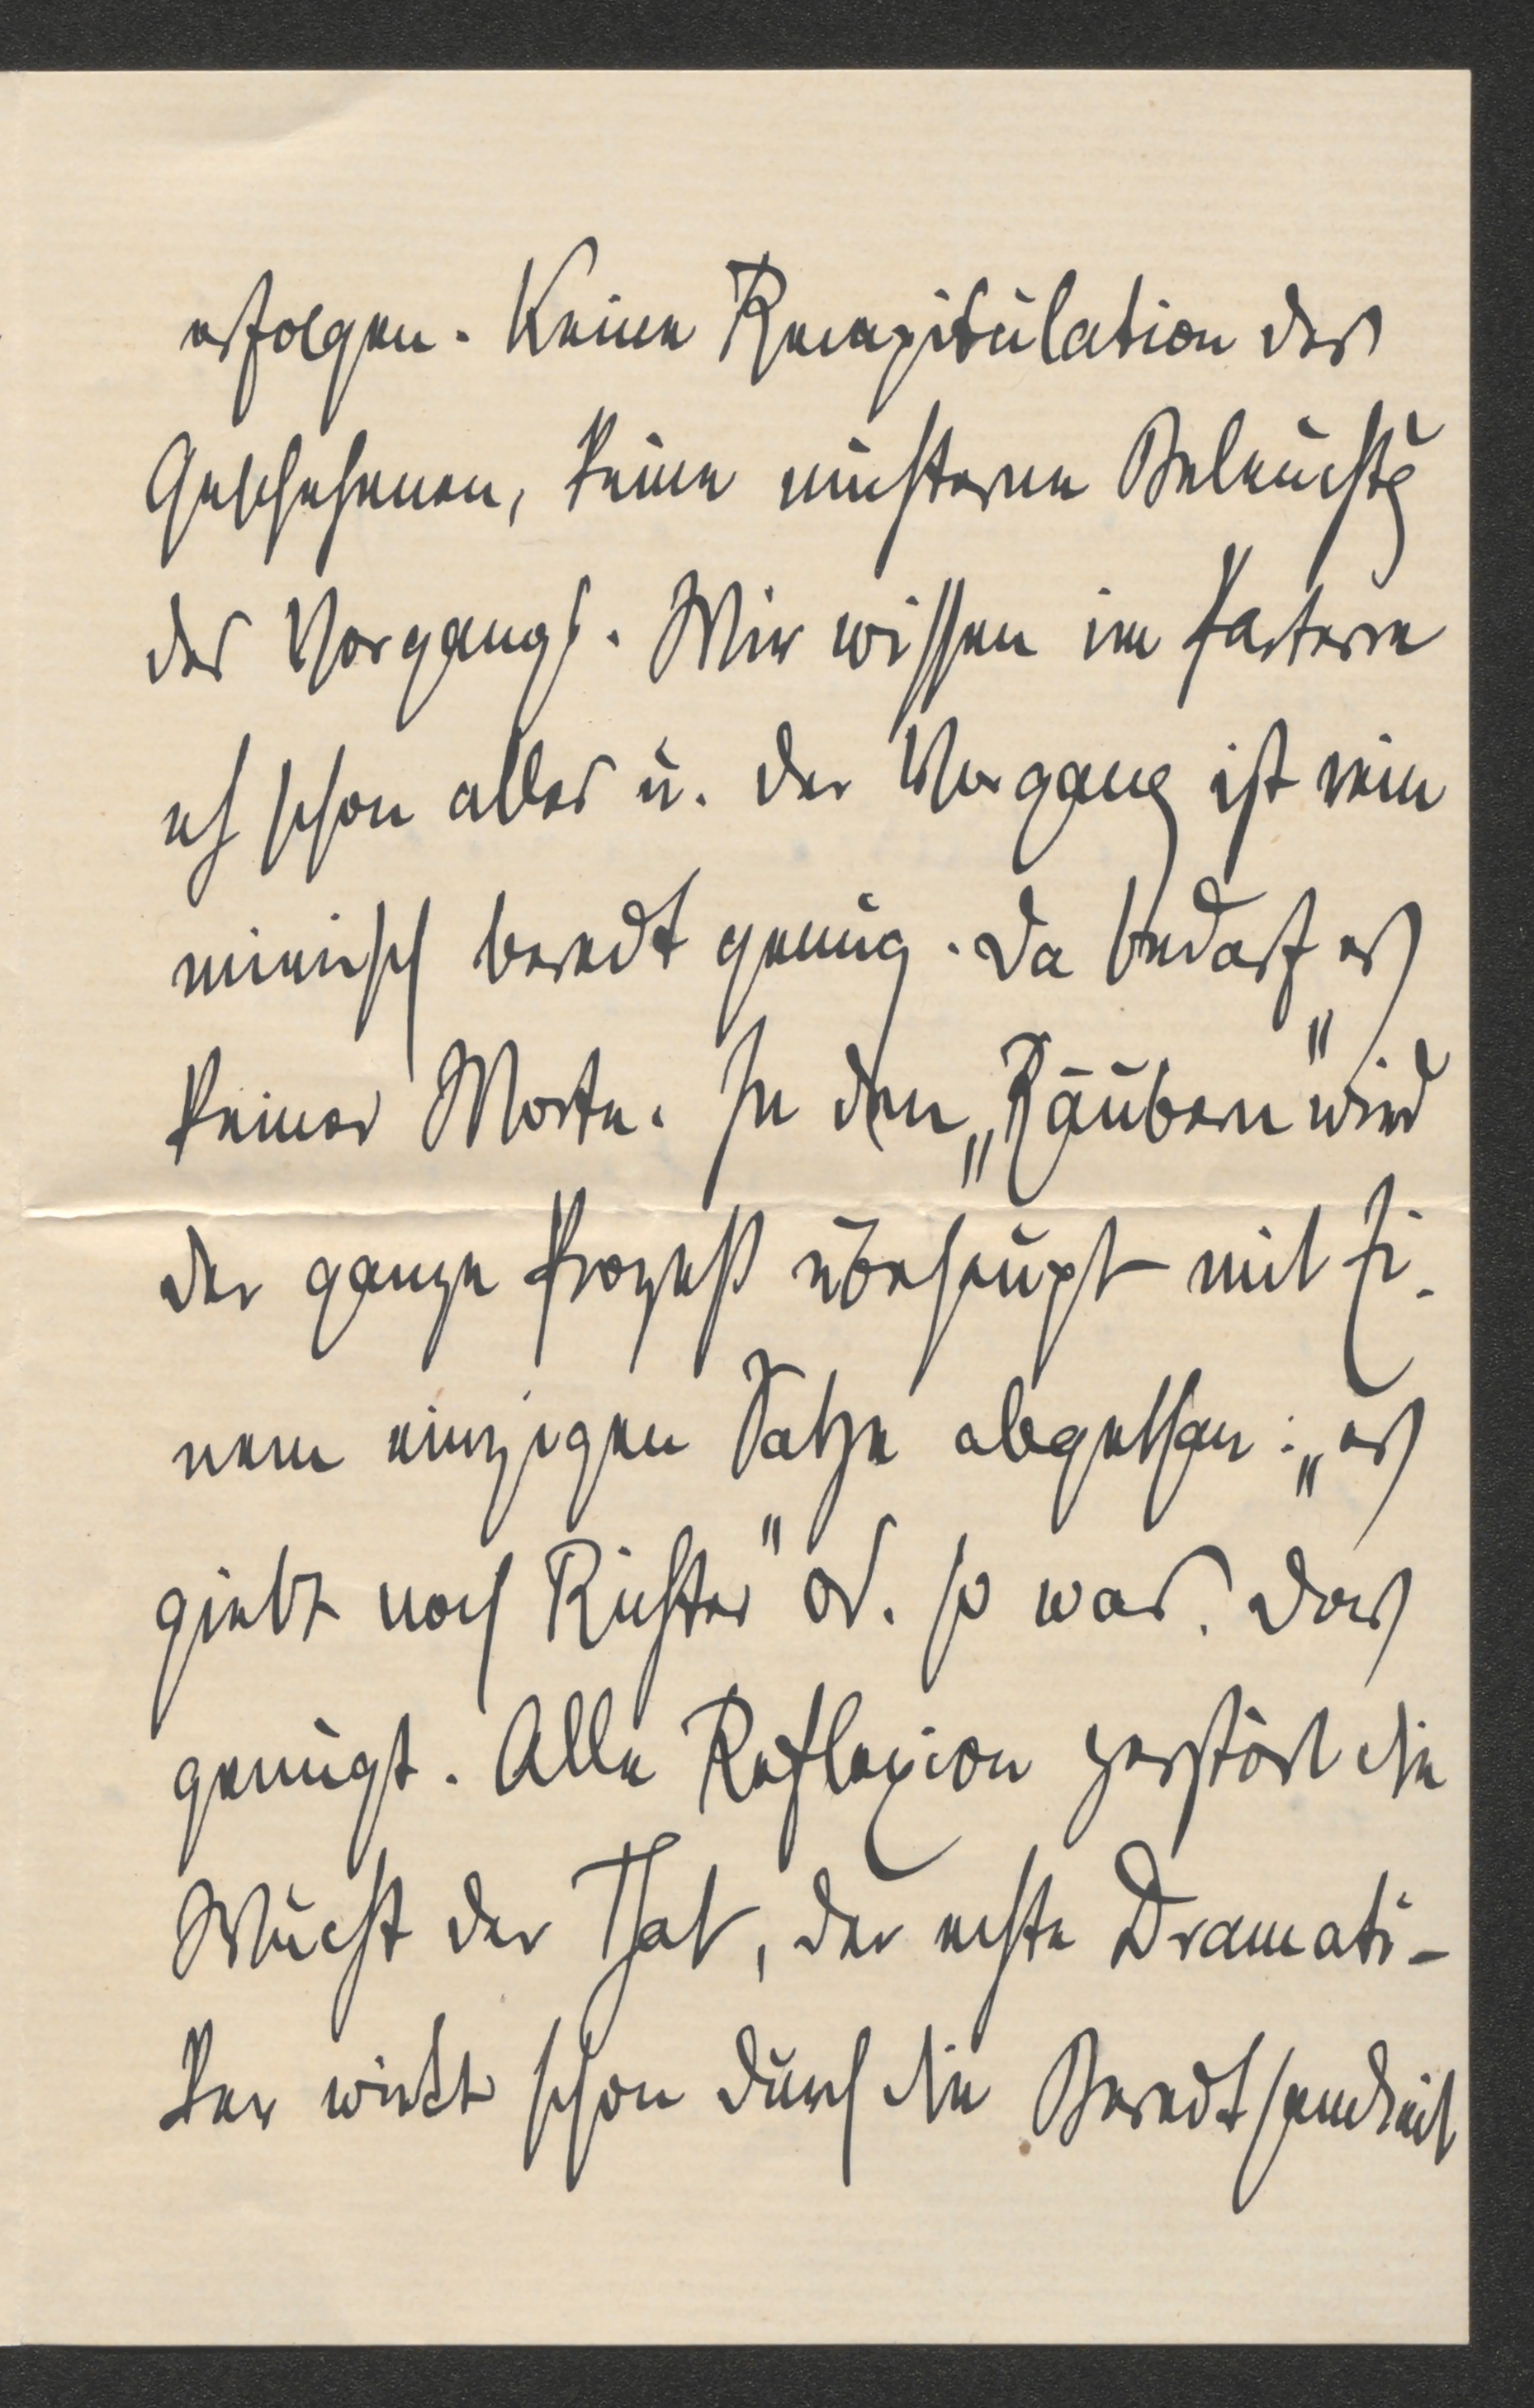 erfolgen. Keine Recapitulation des
Geschehenen, keine nüchterne Beleuchtg
des Vorgangs. Wir wissen im Parterre
eh schon alles u. der Vorgang ist rein
mimisch beredt genug. Da bedarf es
keiner Worte. In den „Räubern" wird
der ganze Prozeß überhaupt mit Ei-
nem einzigen Satze abgethan: „es
giebt noch Richter" od. so was. Das
genügt. Alle Reflexion zerstört die
Wucht der That, der echte Dramati-
ker wirkt schon durch die Beredtsamkeit